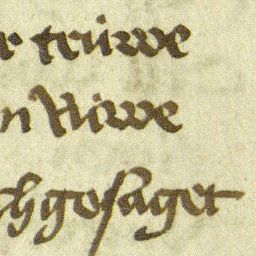 r trüwe
n Rüwe
ch gesaget